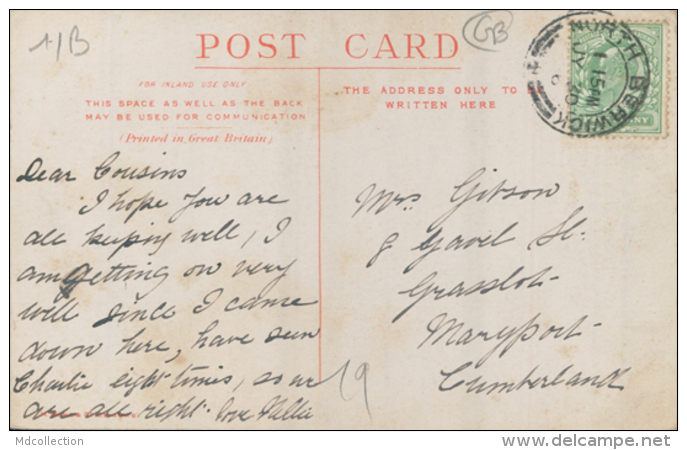 1/B
GB
POST CARD
FOR INLAND USE ONLY
THIS SPACE AS WELL AS THE BACK
MAY BE USED FOR COMMUNICATION
(Printed in Great Britain)
THE ADDRESS ONLY TO BE
WRITTEN HERE
NORTH BERWICK
1 15PM
JY 20
NNY
Dear Cousins
I hope you are
all keeping well, I
am getting on very
well since I came
down here, have seen
Charlie eight times, so we
are all right. love Nellie
Mrs Gibson
8 Gavel St.
Grasslot
Maryport
Cumberland
19
Mdcollection
www.delcampe.net